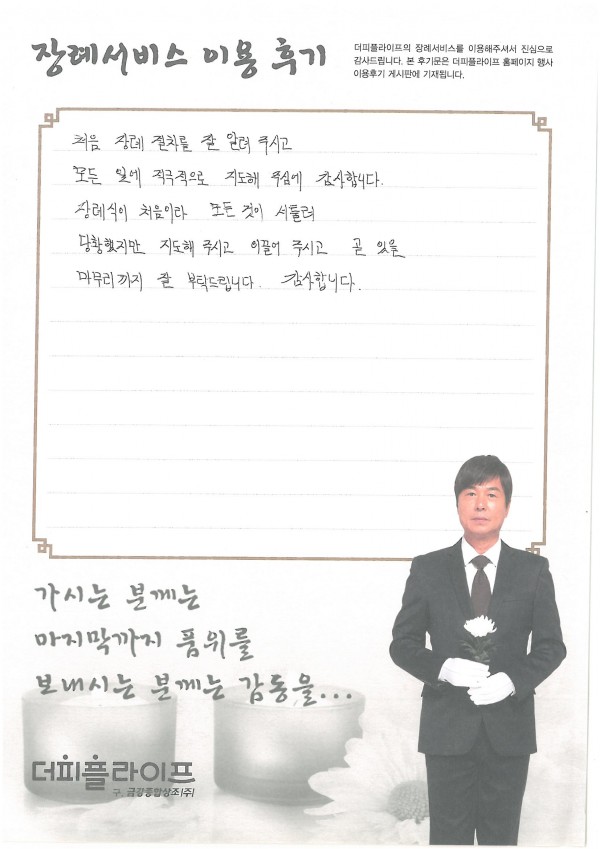 장례서비스 이용 후기
더피플라이프의 장례서비스를 이용해주셔서 진심으로
감사드립니다. 본 후기문은 더피플라이프 홈페이지 행사
이용후기 게시판에 기재됩니다.
처음 장례 절차를 잘 알려 주시고
모든 일에 적극적으로 지도해 주심에 감사합니다.
장례식이 처음이라 모든 것이 서툴러
당황했지만 지도해 주시고 이끌어 주시고 곧 있을
마무리까지 잘 부탁드립니다. 감사합니다.
가시는 분께는
마지막까지 품위를
보내시는 분께는 감동을...
더피플라이프
구. 금강종합상조(주)